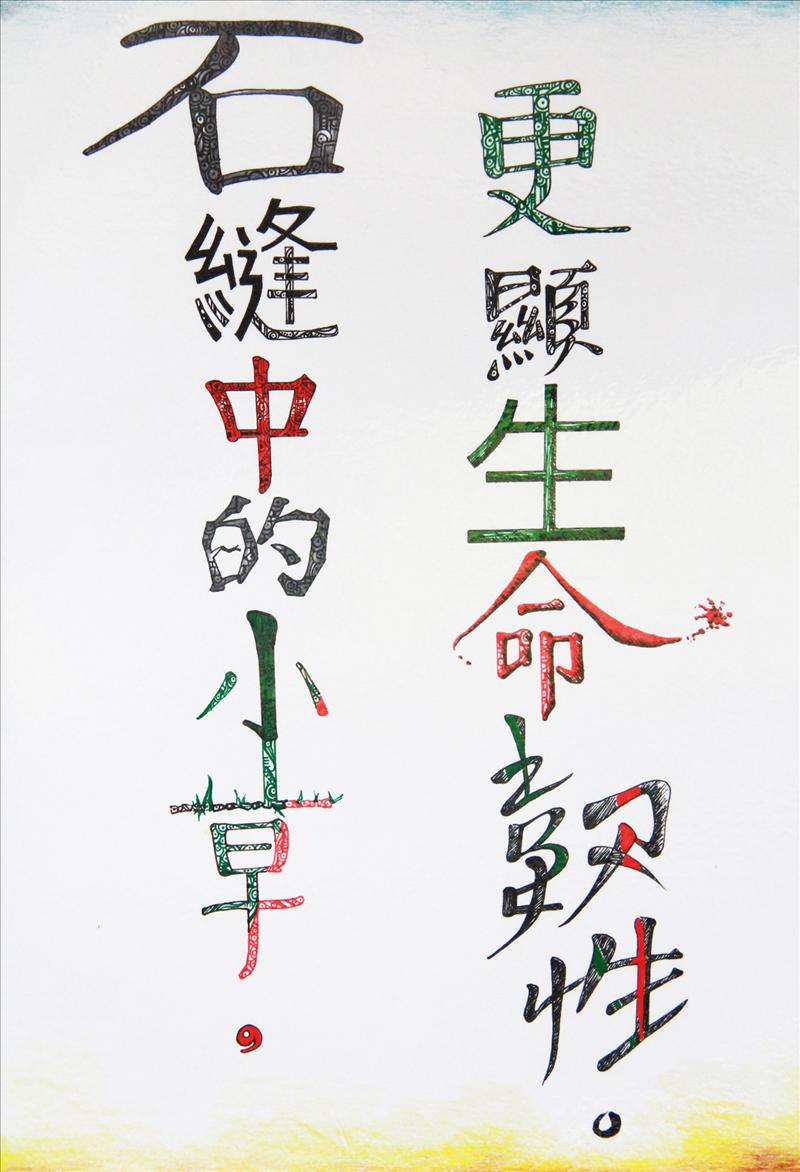 石縫中的小草，
更顯生命韌性。